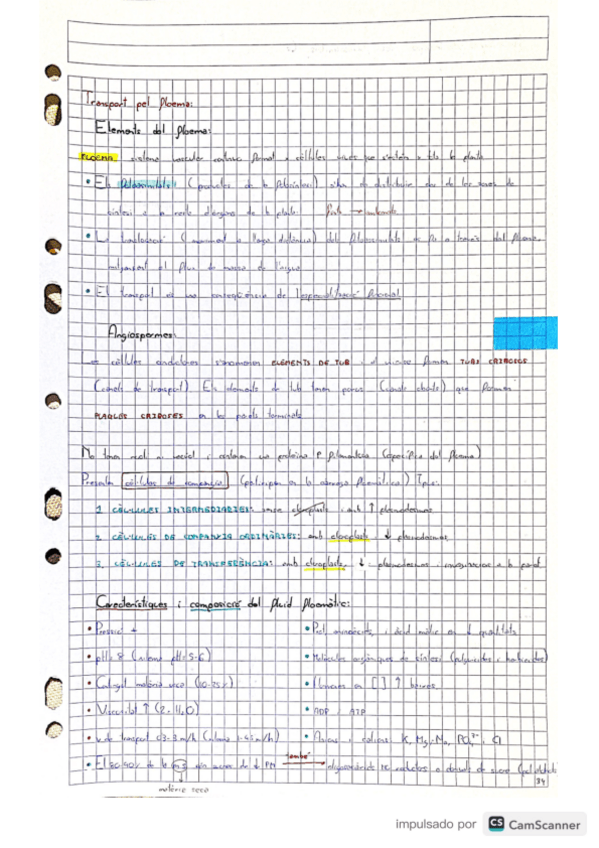 Transport pel floema:
Elements del floema:
FLOEMA sistema vascular continu format cèl·lules vives que s'estén a tota la planta
• Els fotoassimilats (productes de la fotosíntesi) s'han de distribuir des de les zones de
síntesi a la resta d'òrgans de la planta. Font → embornal
• La translocació (moviment a llarga distància) dels fotoassimilats es fa a través del floema,
mitjançant el flux de massa de l'aigua
• El transport és una conseqüència de l'especialització funcional
Angiospermes:
Les cèl·lules conductores s'anomenen ELEMENTS DE TUB i formen TUBS CRIBOSOS
(canals de transport). Els elements de tub tenen porus (canals oberts) que formen
PLAQUES CRIBOSES en les parets terminals
No tenen nucli ni i contenen una proteïna P filamentosa (específica del floema)
Presenta cèl·lules de companyia (participen en la càrrega floemàtica) Tipus:
1. CÈL·LULES INTERMEDIÀRIES: sense cloroplasts i amb ↑ plasmodesmes
2. CÈL·LULES DE COMPANYIA ORDINÀRIES: amb cloroplasts, ↓ plasmodesmes
3. CÈL·LULES DE TRANSFERÈNCIA: amb cloroplasts, ↓ plasmodesmes i invaginacions a la paret
Característiques i composició del fluid floemàtic:
• Pressió +
• pH≈8 (xilema pH=5-6)
• Contingut matèria seca (10-25%)
• Viscositat ↑ (2·H₂O)
• v de transport 0,3-3 m/h (xilema 1-45 m/h)
• El 80-90% de la m.s són sucres de ↓ PM també
matèria seca
• Prot, aminoàcids, i àcid màlic en ↓ quantitats
• Molècules orgàniques de síntesi
• Hormones en [ ] ↑
• ADP i ATP
• Anions i cations: K, Mg, Na, PO₄³⁻, Cl
34
impulsado por CS CamScanner